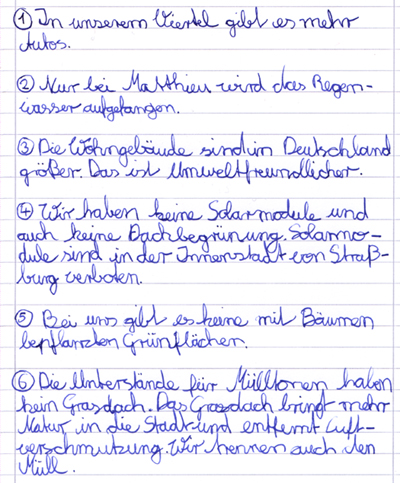 ① In unserem Viertel gibt es mehr
Autos.
② Nur bei Matthieu wird das Regen-
wasser aufgefangen.
③ Die Wohngebäude sind in Deutschland
größer. Das ist Umweltfreundlicher.
④ Wir haben keine Solarmodule und
auch keine Dachbegrünung. Solarmo-
dule sind in der Innenstadt von Straß-
burg verboten.
⑤ Bei uns gibt es keine mit Bäumen
bepflanzten Grünflächen.
⑥ Die Unterstände für Mülltonen haben
kein Grasdach. Das Grasdach bringt mehr
Natur in die Stadt und entfernt Luft-
verschmutzung. Wir trennen auch den
Müll.